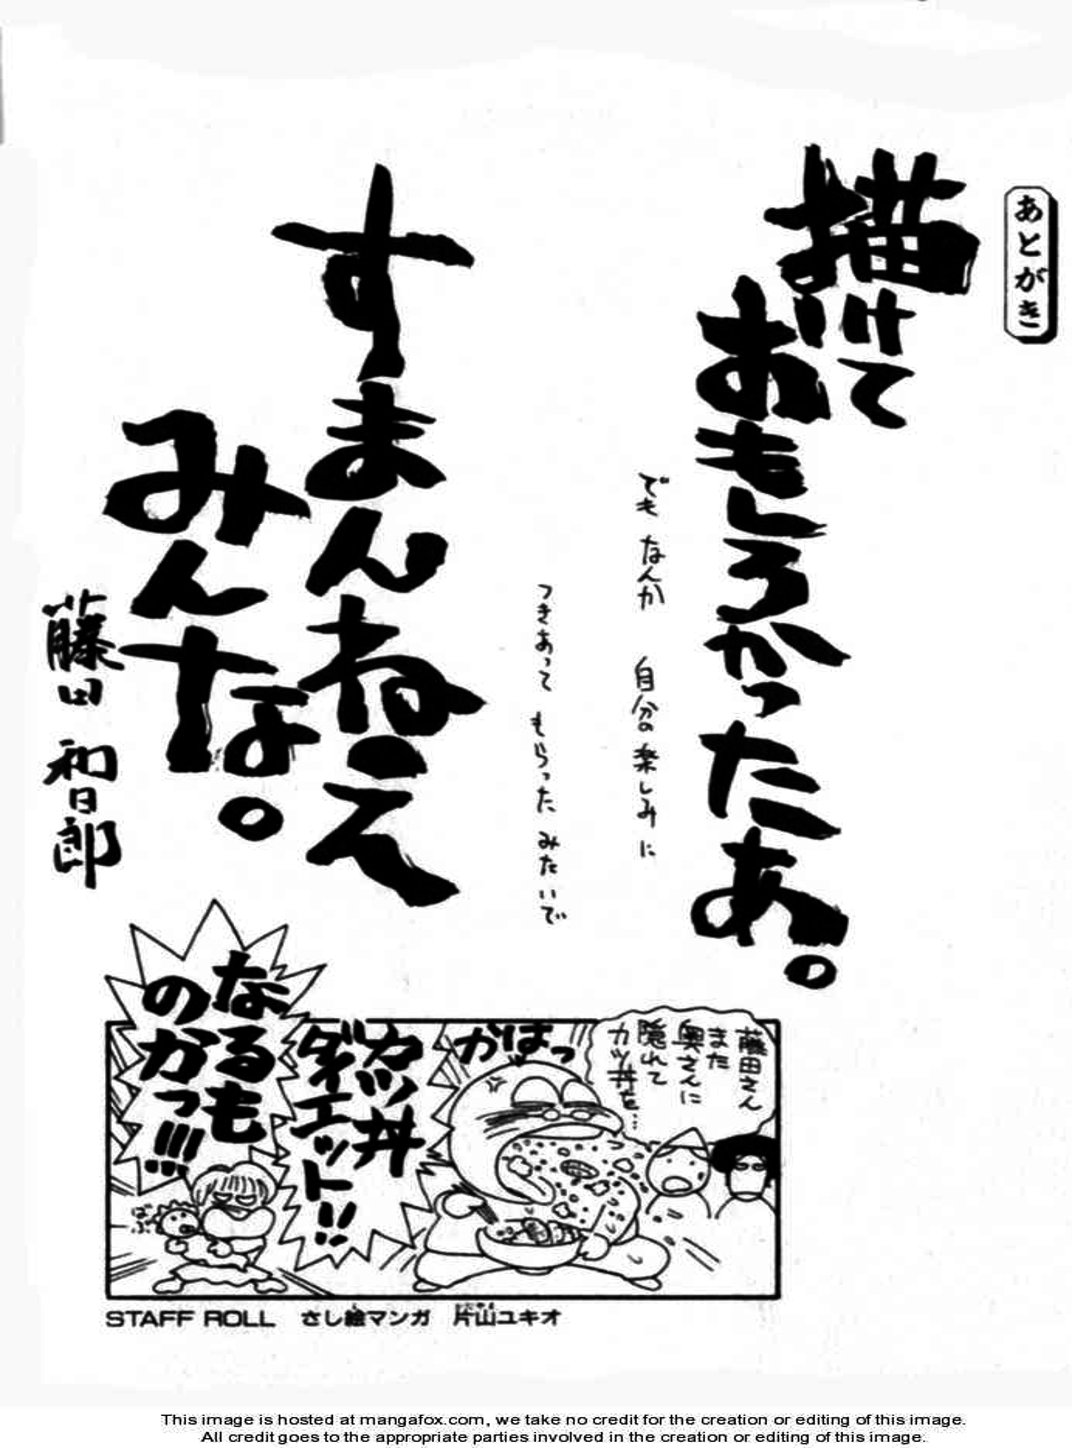 あとがき
描けて
おもしろかったぁ。
でも なんか 自分の楽しみに
つきあって もらった みたいで
すまんねえ
みんな。
藤田 和日郎
藤田さん
また
奥さんに
隠れて
カツ丼を…
かぱっ
カツ丼
ダイエット!!
なるも
のかっ!!!
ばぶ
STAFF ROLL さし絵マンガ 片山ユキオ
This image is hosted at mangafox.com, we take no credit for the creation or editing of this image.
All credit goes to the appropriate parties involved in the creation or editing of this image.